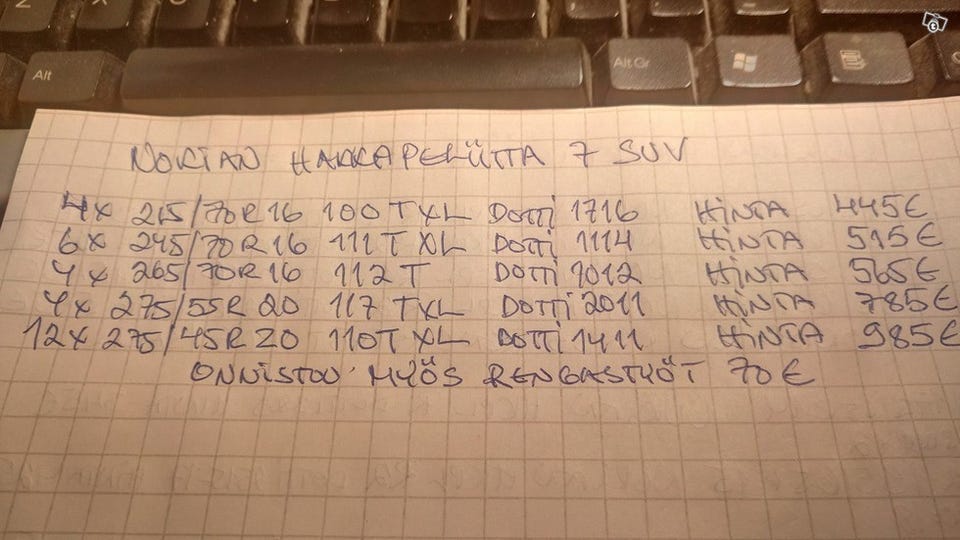 Alt
Alt Gr
NOKIAN HAKKAPELIITTA 7 SUV
4x 215/70R16 100TXL DOTTI 1716 HINTA 445€
6x 245/70R16 111TXL DOTTI 1114 HINTA 515€
4x 265/70R16 112T DOTTI 1012 HINTA 565€
4x 275/55R20 117TXL DOTTI 2011 HINTA 785€
12x 275/45R20 110TXL DOTTI 1411 HINTA 985€
ONNISTUU MYÖS RENGASTYÖT 70€